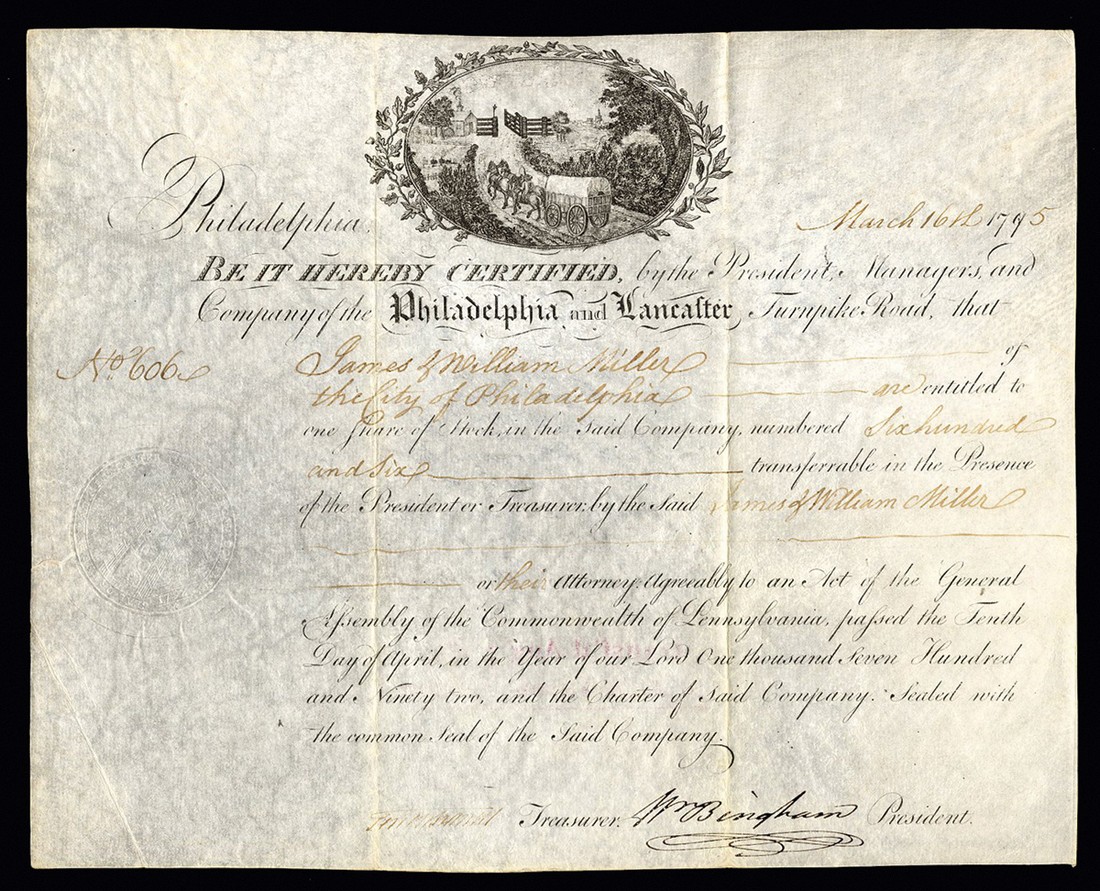 Philadelphia. March 16th 1795
BE IT HEREBY CERTIFIED, by the President, Managers, and
Company of the Philadelphia and Lancaster Turnpike Road, that
No 606 James & William Miller of
the City of Philadelphia are entitled to
one Share of Stock, in the Said Company, numbered Six hundred
and Six transferrable in the Presence
of the President or Treasurer, by the Said James & William Miller
or their Attorney, Agreeably to an Act of the General
Assembly of the Commonwealth of Pennsylvania, passed the Tenth
Day of April, in the Year of our Lord One thousand Seven Hundred
and Ninety two, and the Charter of Said Company. Sealed with
the common Seal of the Said Company.
Treasurer. Wm Bingham President.